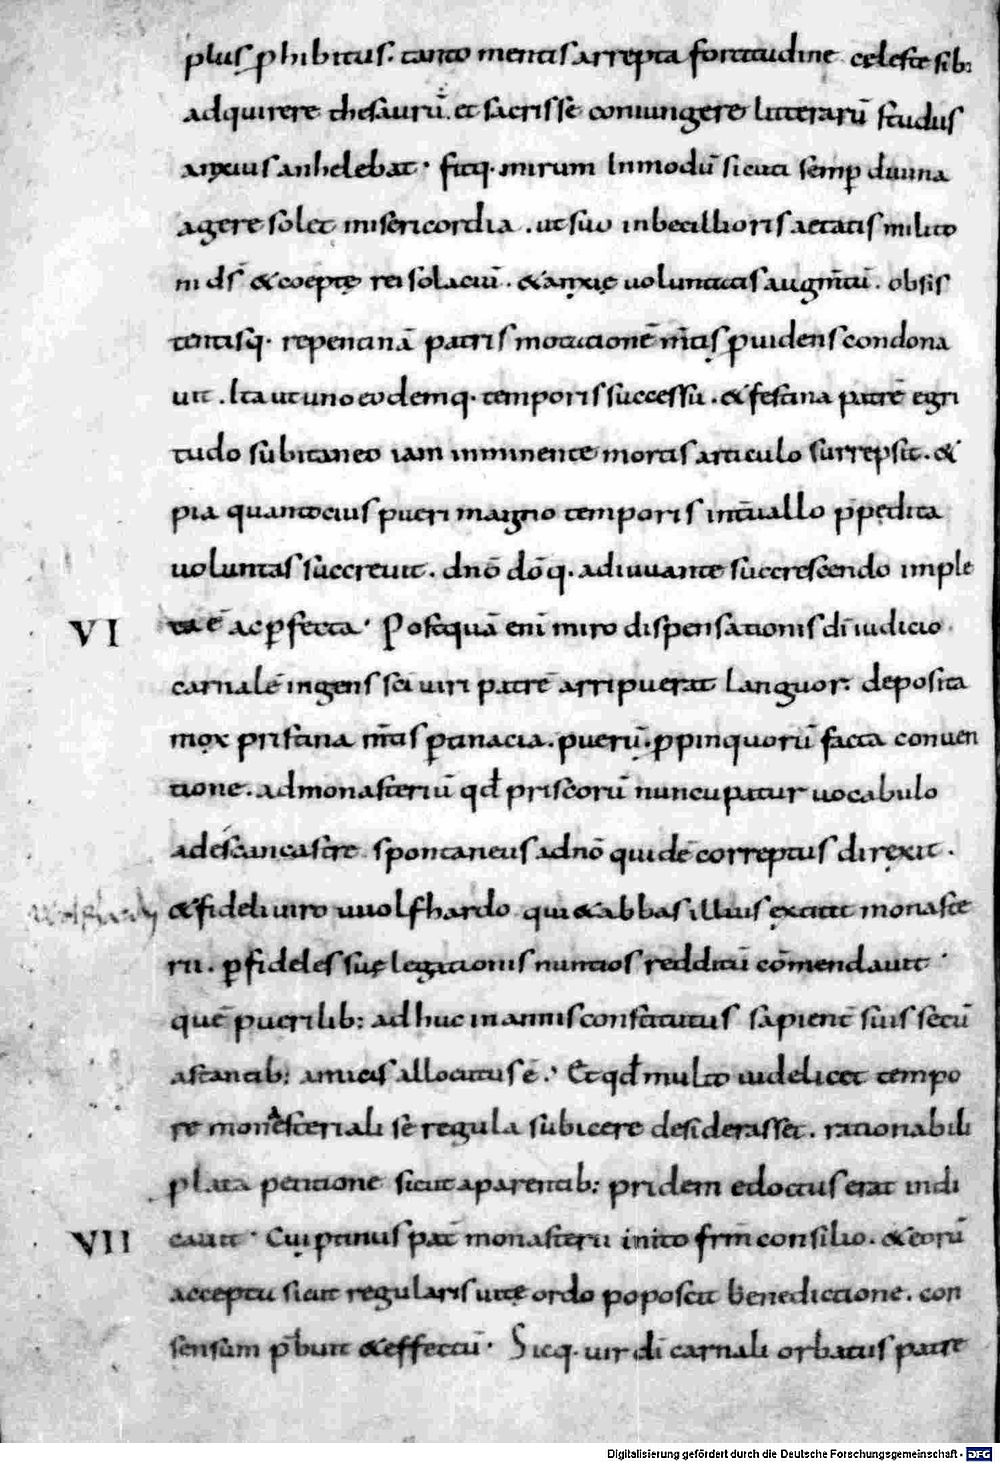 plus ꝓhibitus. tanto mentis arrepta fortitudine cęlestẽ sib:
adquirere thesaurũ. et sacris sẽ coniungere litterarũ studiis
anxius anhelebat. fitq. mirum Inmodũ sicuti semꝑ diuina
agere solet misericordia. ut suo inbecillioris aetatis milito
ni dš &coeptę rei solaciũ. &anxię uoluntatis augm̃tũ. obsis
tentisq. repentinã patris motationẽ m̃tis ꝓuidens condona
uit. Ita ut uno eodemq. temporis successu. &festina patrẽ egri
tudo subitaneo iam imminente mortis articulo surrepsit. &
pia quantocius pueri magno temporis int̃uallo p̃pedita
uoluntas succreuit. dnõ dõq. adiuuante succrescendo imple
VI ta ẽ ac ꝑfecta. Postquã enĩ miro dispensationis dĩ iudicio
carnalẽ ingens scĩ uiri patrẽ arripuerat languor. deposita
mox pristina m̃tis ꝑtinacia. puerũ. ꝓpinquorũ facta conuen
tione. ad monasteriũ qđ priscorũ nuncupatur uocabulo
adescancastre spontaneus ad dnõ quidẽ correptus direxit.
&fideli uiro uuolfhardo qui &abbas illius extitit monaste
rii. ꝑ fideles suę legationis nuntios redditũ cõmendauit.
quẽ puerilib: adhuc in annis constitutus sapient̃ suis secũ
astantib: amicis allocutus ẽ. Et qđ multo uidelicet tempo
re monesteriali sẽ regula subicere desiderasset. rationabili
plata petitione sicut aparentib: pridem edoctus erat indi
VII cauit. Cui ꝓtinus pat̃ monasterii inito frm̃ consilio. &eorũ
acceptu sicut regularis uitę ordo poposcit benedictione. con
sensum p̃buit &effectũ. Sicq. uir dĩ carnali orbatus patre
Digitalisierung gefördert durch die Deutsche Forschungsgemeinschaft - DFG